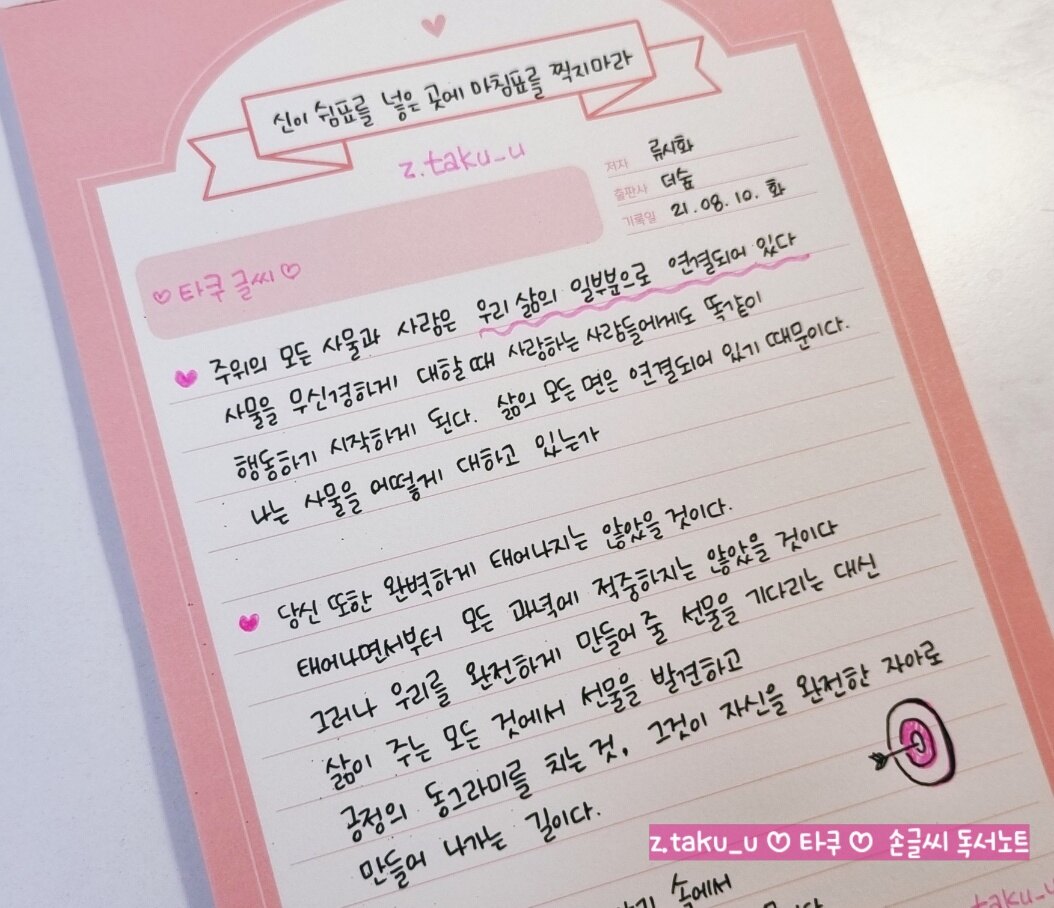 신이 쉼표를 넣은 곳에 마침표를 찍지마라
z.taku_u
저자 류시화
출판사 더숲
기록일 21.08.10. 화
♡ 타쿠 글씨 ♡
주위의 모든 사물과 사람은 우리 삶의 일부분으로 연결되어 있다
사물을 무신경하게 대할 때 사랑하는 사람들에게도 똑같이
행동하기 시작하게 된다. 삶의 모든 면은 연결되어 있기 때문이다.
나는 사물을 어떻게 대하고 있는가
당신 또한 완벽하게 태어나지는 않았을 것이다.
태어나면서부터 모든 과녁에 적중하지는 않았을 것이다
그러나 우리를 완전하게 만들어 줄 선물을 기다리는 대신
삶이 주는 모든 것에서 선물을 발견하고
긍정의 동그라미를 치는 것, 그것이 자신을 완전한 자아로
만들어 나가는 길이다.
z.taku_u ♡ 타쿠 ♡ 손글씨 독서노트
속에서
taku_u